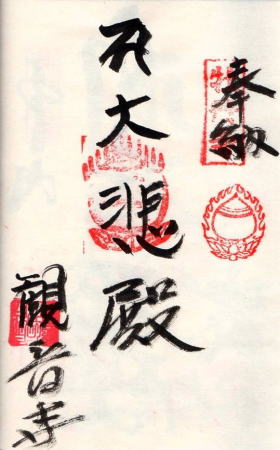 奉納
大悲殿
観音寺